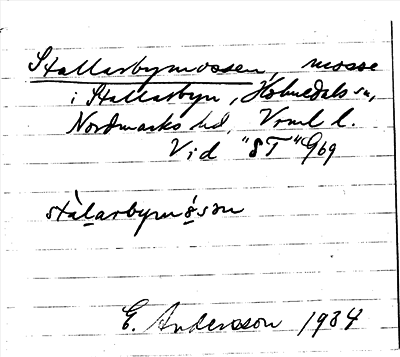 Stallarbymossen, mosse
i Stallarbyn, Holmedals sn,
Nordmarks hd, Vrml l.
Vid "8T" Gbg
stàlarbymósən
E. Andersson 1934